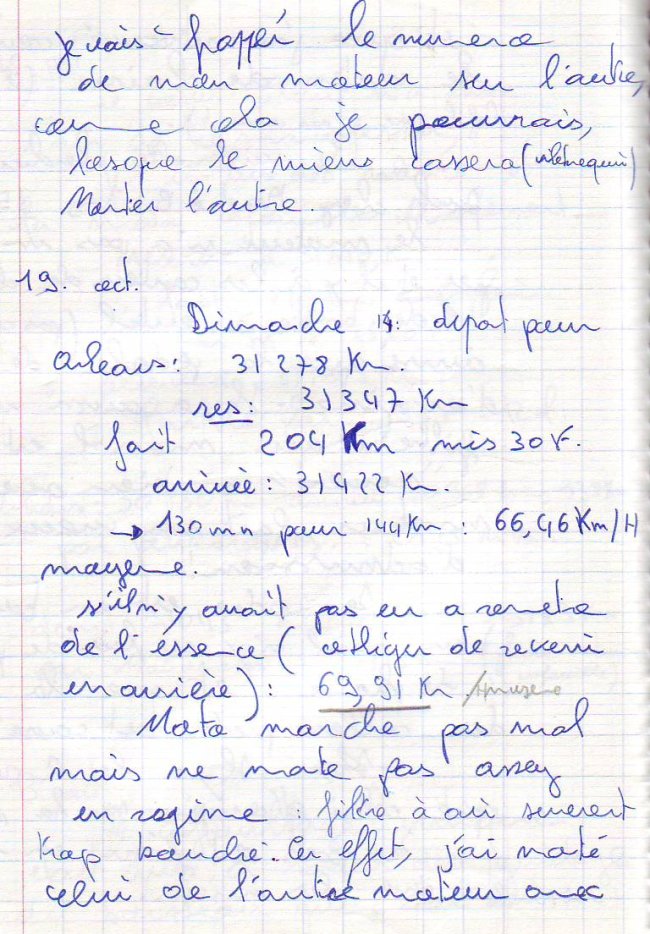 je vais frapper le numero
de mon moteur sur l'autre,
comme cela je pourrais,
losque le miens cassera (vilbrequin)
Monter l'autre.
19. oct.
Dimanche 14: depat pour
Orleans: 31278 Km.
res: 31347 Km
fait 204 Km mis 30 F.
arrivée: 31422 Km.
→ 130 mn pour 144 Km: 66,46 Km/H
moyenne.
s'il n'y avait pas eu a remetre
de l'essence (obliger de revenir
en arrière): 69,91 Km
Moto marche pas mal
mais ne monte pas assez
en regime: filtre à air souvent
trop bouché. En effet, j'ai monté
celui de l'autre moteur avec